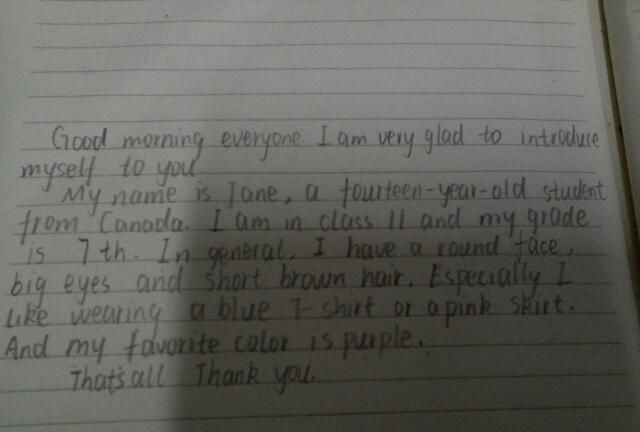 Good morning everyone I am very glad to introduce
myself to you
My name is Jane, a fourteen-year-old student
from Canada. I am in class 11 and my grade
is 7th. In general, I have a round face,
big eyes and short brown hair. Especially I
like wearing a blue T-shirt or a pink skirt.
And my favorite color is purple.
That's all Thank you.